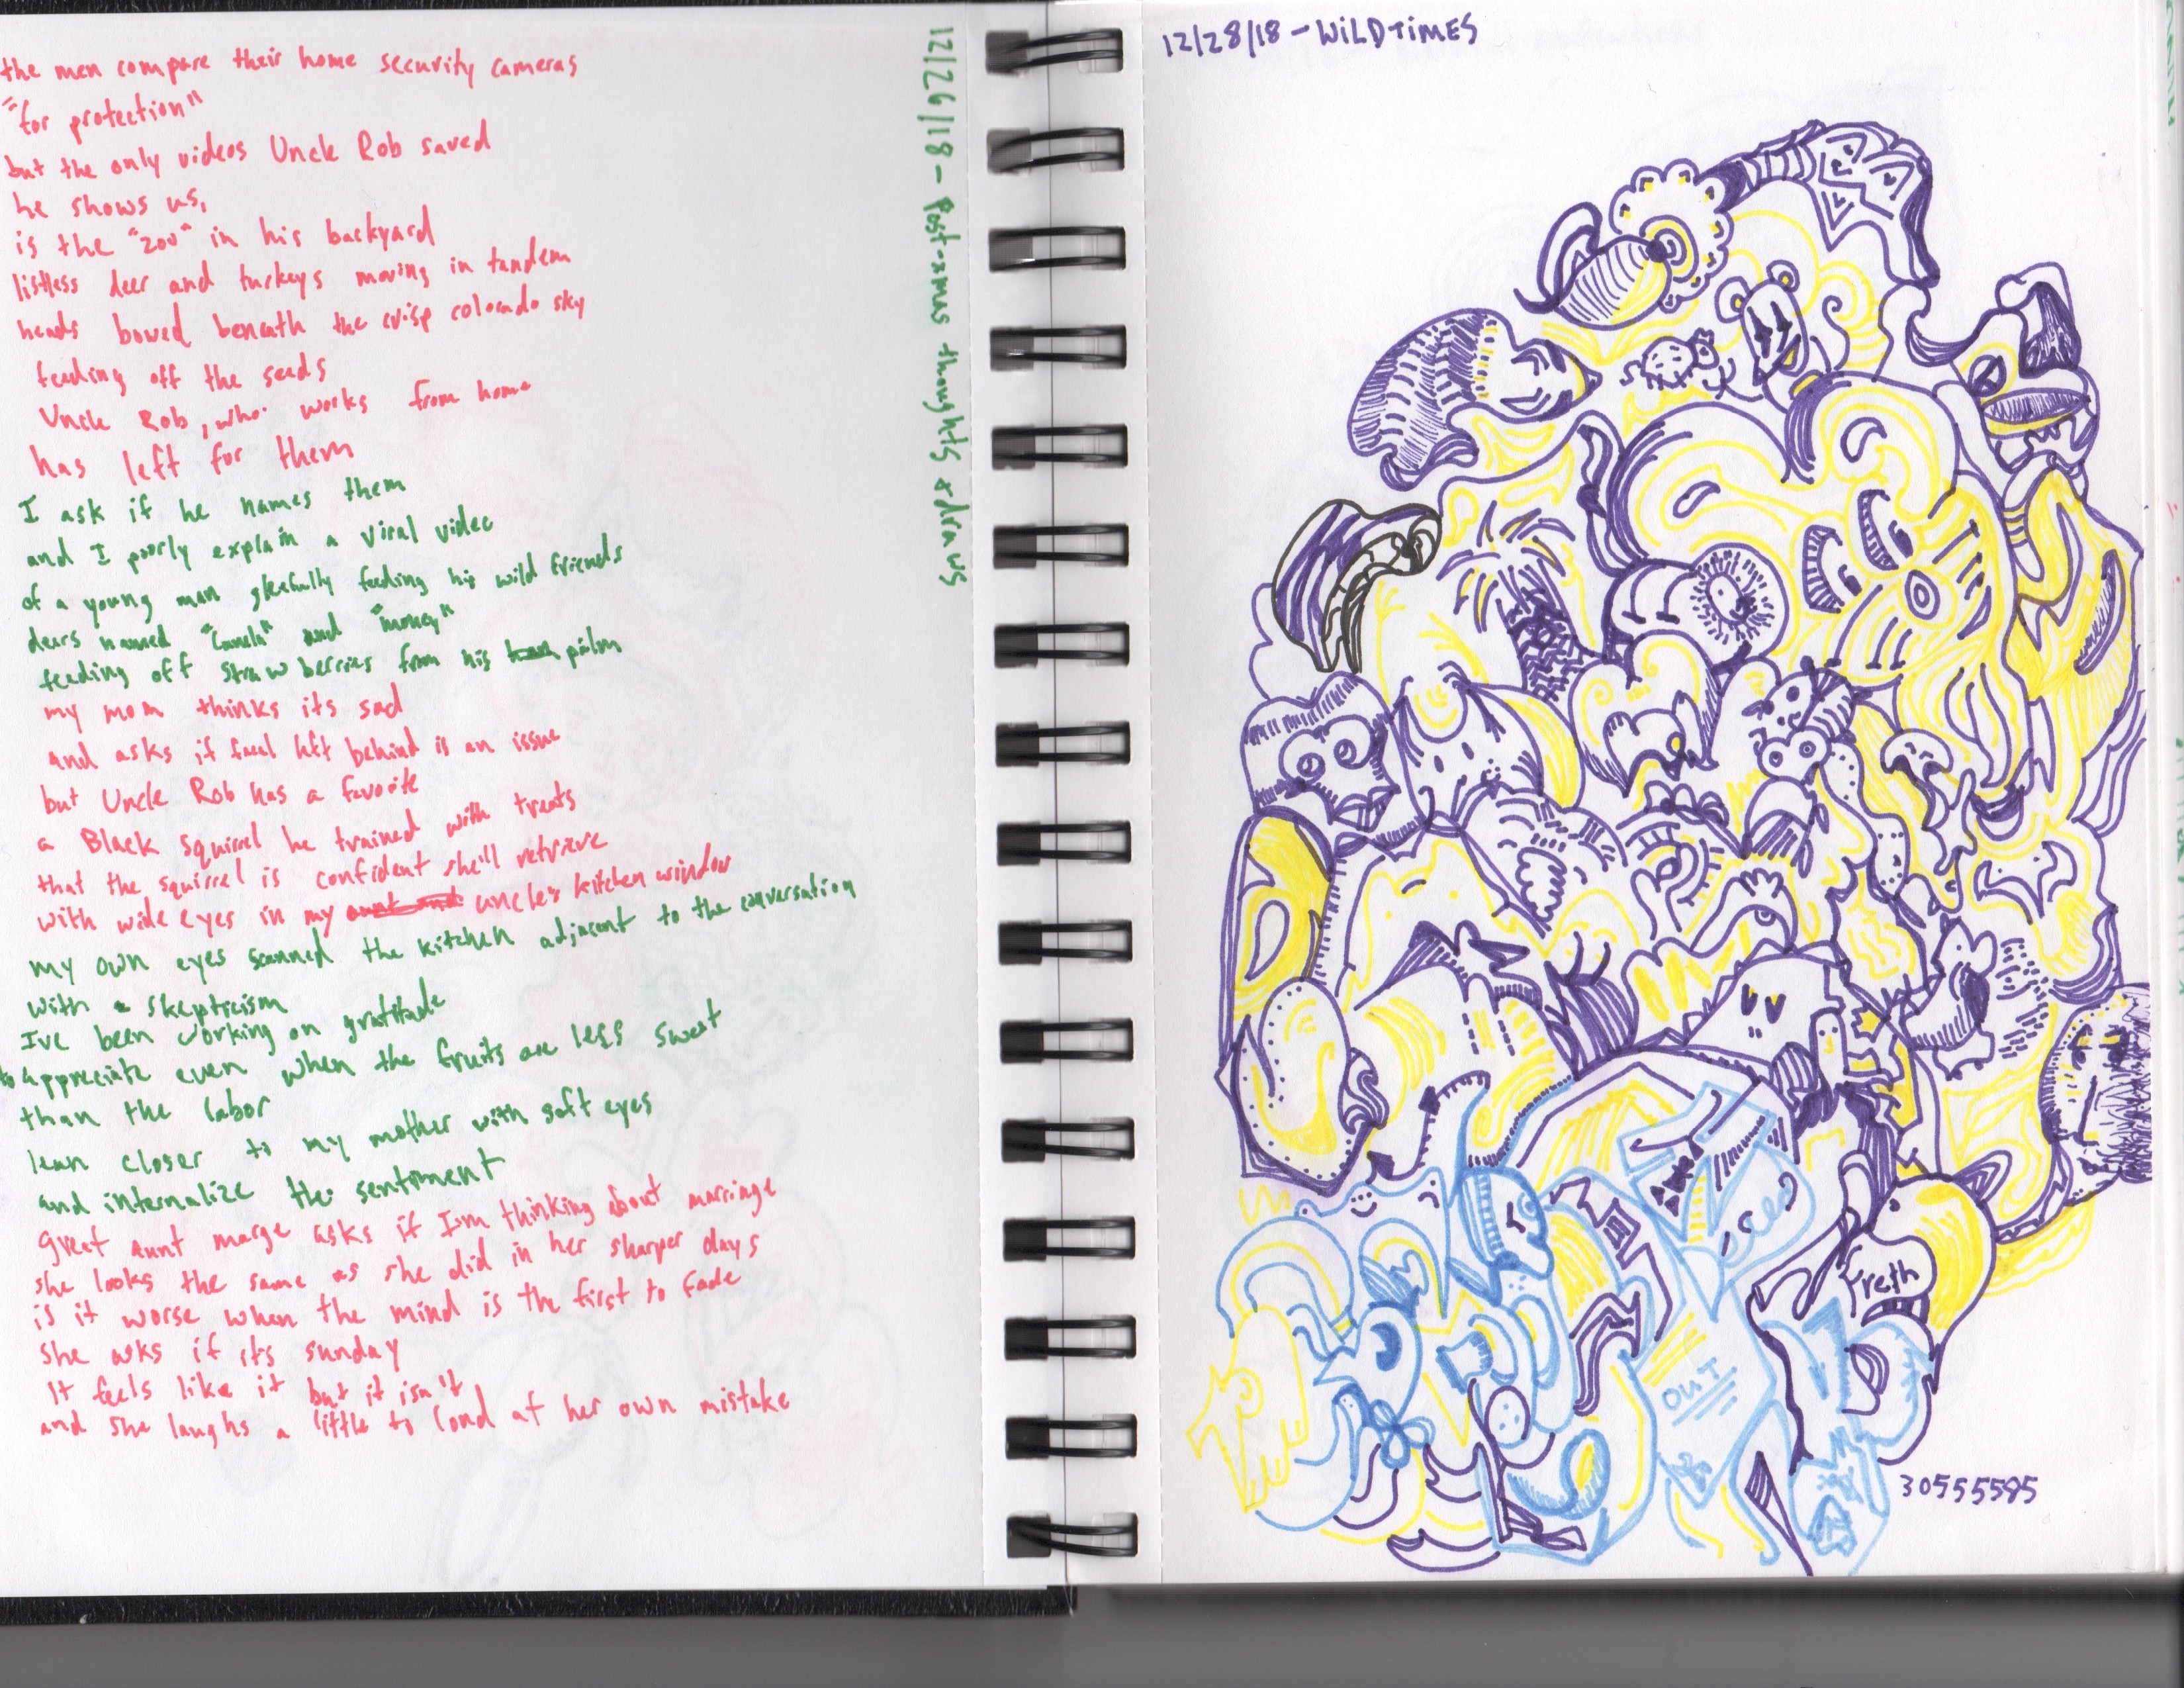 the men compare their home security cameras
"for protection"
but the only videos Uncle Rob saved
he shows us,
is the "zoo" in his backyard
listless deer and turkeys moving in tandem
heads bowed beneath the crisp colorado sky
feeding off the seeds
Uncle Rob, who works from home
has left for them
I ask if he names them
and I poorly explain a viral video
of a young man gleefully feeding his wild friends
deers named "Canela" and "money"
feeding off strawberries from his palm
my mom thinks its sad
and asks if fecal left behind is an issue
but Uncle Rob has a favorite
a Black squirrel he trained with treats
that the squirrel is confident she'll retrieve
with wide eyes in my uncle's kitchen window
my own eyes scanned the kitchen adjacent to the conversation
with a skepticism
I've been working on gratitude
to appreciate even when the fruits are less sweet
than the labor
lean closer to my mother with soft eyes
and internalize the sentiment
great aunt marge asks if I'm thinking about marriage
she looks the same as she did in her sharper days
is it worse when the mind is the first to fade
she asks if it's sunday
it feels like it but it isn't
and she laughs a little to loud at her own mistake
12/26/18 - Post-xmas thoughts & draws
12/28/18 - WiLDTiMES
reth
OUT
30555585